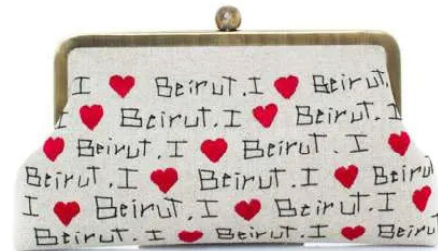 I ♥ Beirut. I ♥ Beirut.
I ♥ Beirut. I ♥ Beirut.
♥ Beirut. I ♥ Beirut. I ♥
Beirut. I ♥ Beirut. I ♥ Beirut.
I ♥ Beirut. I ♥ Beirut. I ♥
Beirut. I ♥ Beirut. I ♥ Beirut.